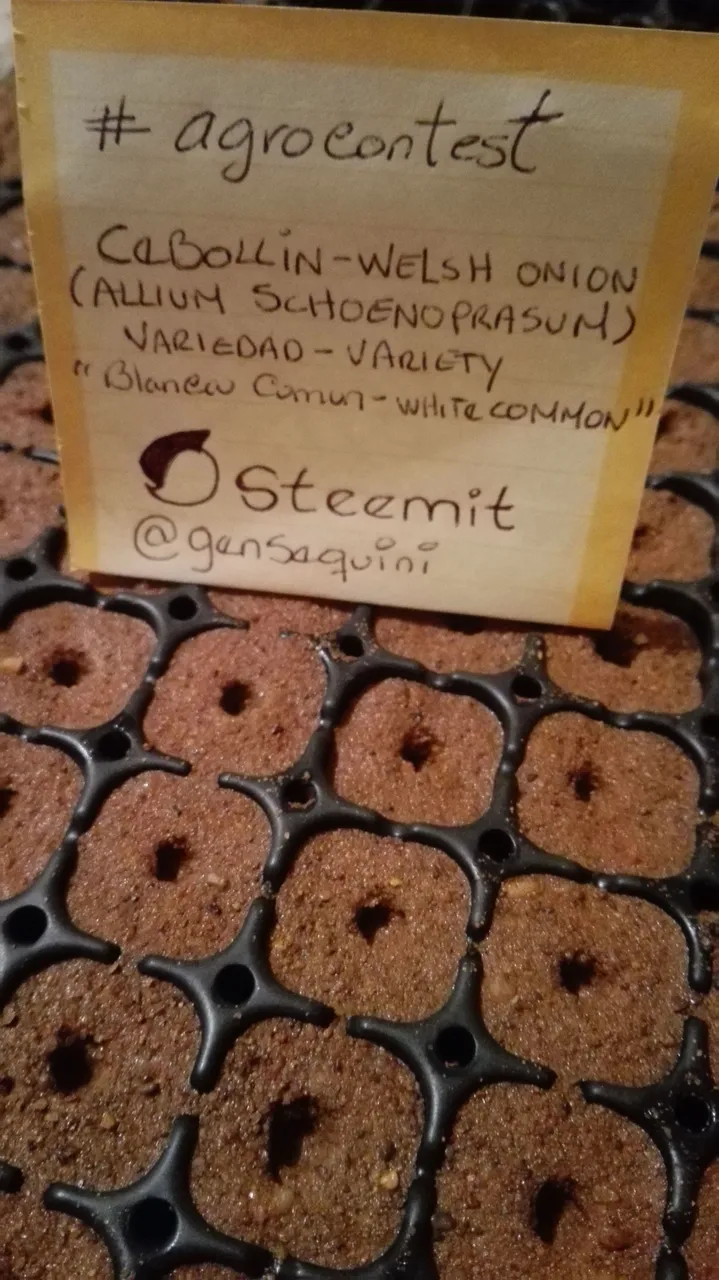 # agrocontest
CeBOLLiN-WELSH ONION
(ALLIUM SCHOENOPRASUM)
VARIEDAD-VARIETY
"Blanco Comun-WHITe COMMON"
Steemit
@gensaquini